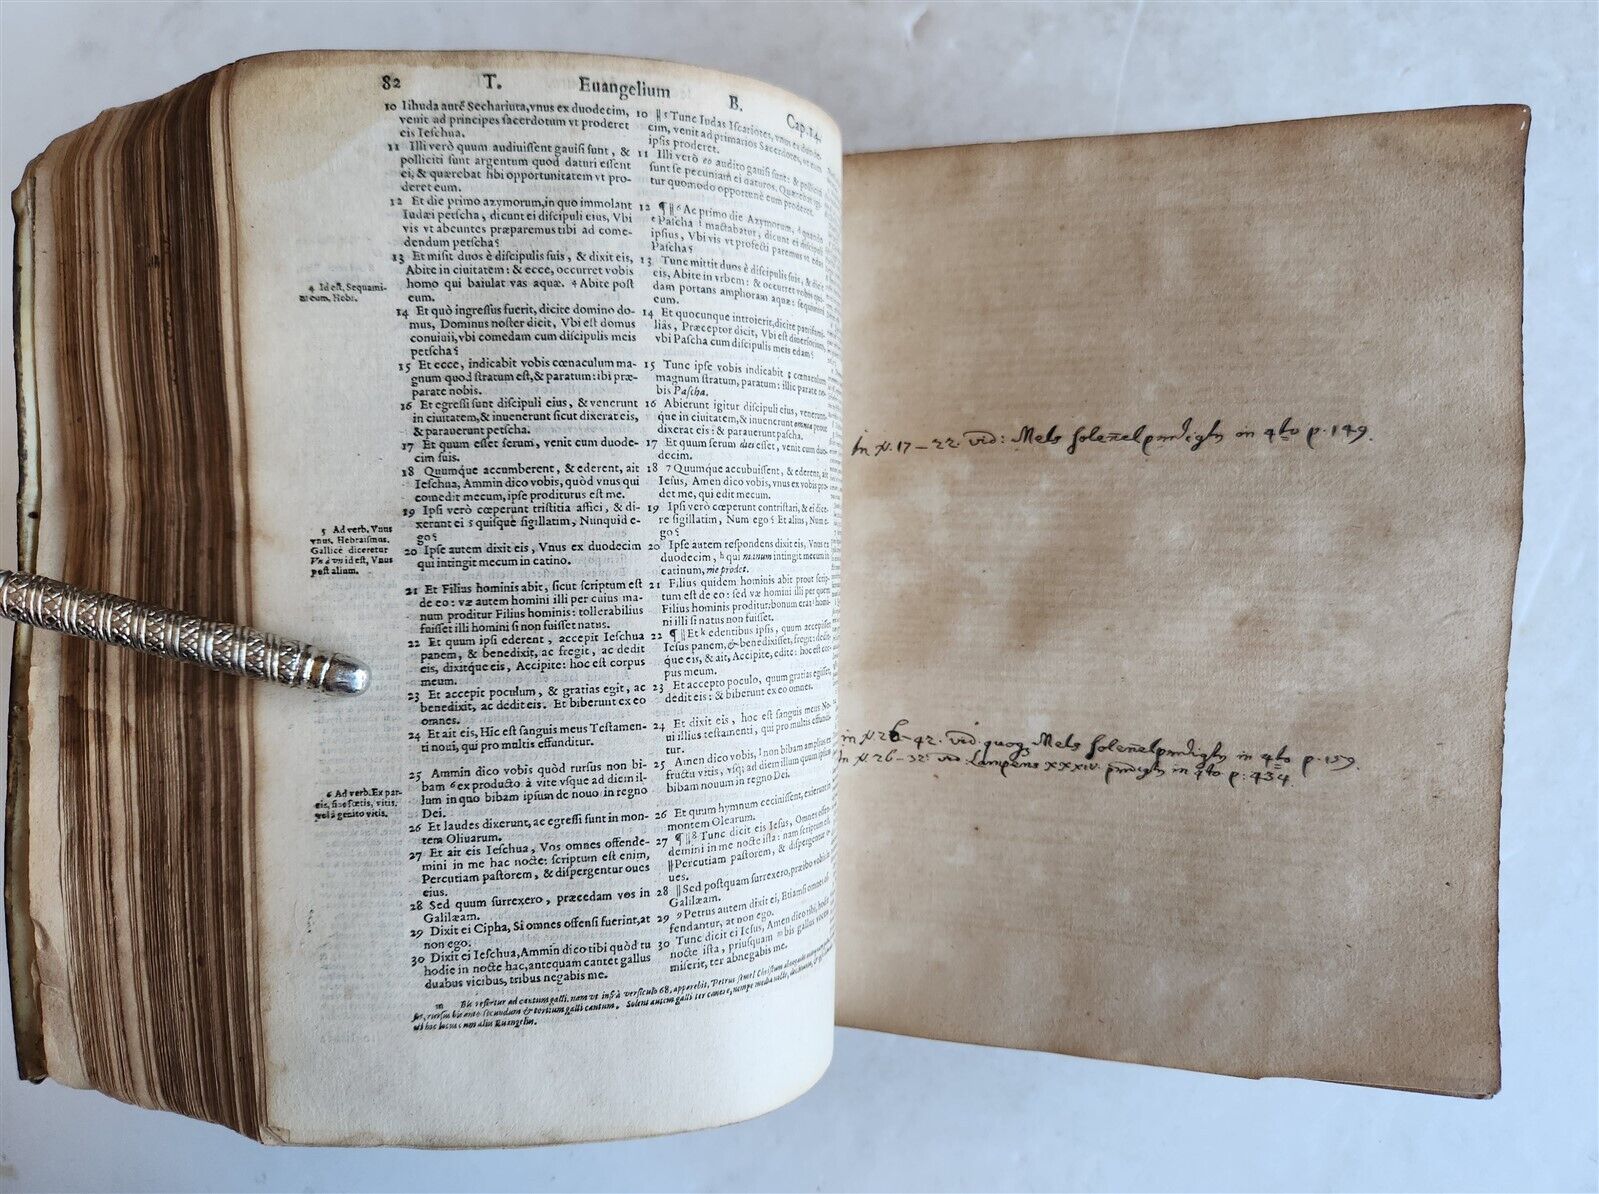 82 T. Euangelium B. Cap. 14.
10 Iihuda autē Sechariuta, vnus ex duodecim,
venit ad principes sacerdotum vt proderet
eis Ieschua.
11 Illi verò quum audiuissent gauisi sunt, &
polliciti sunt argentum quod daturi essent
ei, & quærebat sibi opportunitatem vt pro-
deret eum.
12 Et die primo azymorum, in quo immolant
Iudæi petscha, dicunt ei discipuli eius, Vbi
vis vt abeuntes præparemus tibi ad come-
dendum petscha?
13 Et misit duos è discipulis suis, & dixit eis,
Abite in ciuitatem: & ecce, occurret vobis
homo qui baiulat vas aquæ. 4 Abite post
eum.
14 Et quò ingressus fuerit, dicite domino do-
mus, Dominus noster dicit, Vbi est domus
conuiuii, vbi comedam cum discipulis meis
petscha?
15 Et ecce, indicabit vobis cœnaculum ma-
gnum quod stratum est, & paratum: ibi præ-
parate nobis.
16 Et egressi sunt discipuli eius, & venerunt
in ciuitatem, & inuenerunt sicut dixerat eis,
& parauerunt petscha.
17 Et quum esset serum, venit cum duode-
cim suis.
18 Quumque accumberent, & ederent, ait
Ieschua, Ammin dico vobis, quòd vnus qui
comedit mecum, ipse proditurus est me.
19 Ipsi verò cœperunt tristitia affici, & di-
xerunt ei 5 quisque sigillatim, Nunquid e-
go?
20 Ipse autem dixit eis, Vnus ex duodecim
qui intingit mecum in catino.
21 Et Filius hominis abit, sicut scriptum est
de eo: væ autem homini illi per cuius ma-
num proditur Filius hominis: tollerabilius
fuisset illi homini si non fuisset natus.
22 Et quum ipsi ederent, accepit Ieschua
panem, & benedixit, ac fregit, ac dedit
eis, dixitque eis, Accipite: hoc est corpus
meum.
23 Et accepit poculum, & gratias egit, ac
benedixit, ac dedit eis. Et biberunt ex eo
omnes.
24 Et ait eis, Hic est sanguis meus Testamen-
ti noui, qui pro multis effunditur.
25 Ammin dico vobis quòd rursus non bi-
bam 6 ex producto à vite vsque ad diem il-
lum in quo bibam ipsum de nouo in regno
Dei.
26 Et laudes dixerunt, ac egressi sunt in mon-
tem Oliuarum.
27 Et ait eis Ieschua, Vos omnes offende-
mini in me hac nocte: scriptum est enim,
Percutiam pastorem, & dispergentur oues
eius.
28 Sed quum surrexero, præcedam vos in
Galilæam.
29 Dixit ei Cipha, Si omnes offensi fuerint, at
non ego.
30 Dixit ei Ieschua, Ammin dico tibi quòd tu
hodie in nocte hac, antequam cantet gallus
duabus vicibus, tribus negabis me.
4 Id est, Sequami-
ni eum. Hebr.
5 Ad verb. Vnus
vnus. Hebraismus.
Gallicè diceretur
Vn à vn id est, Vnus
post alium.
6 Ad verb. Ex par-
tis, siue fœtis, vitis.
vel à genito vitis.
10 ¶ 5 Tunc Iudas Iscariotes, vnus ex duode-
cim, venit ad primarios Sacerdotes, vt eum
ipsis proderet.
11 Illi verò eo audito gauisi sunt: & polliciti
sunt se pecuniam ei daturos. Quærebat igi-
tur quomodo opportunè eum proderet.
12 ¶ 6 Ac primo die Azymorum, quando
Pascha mactabatur, dicunt ei discipuli
ipsius, Vbi vis vt profecti paremus vt edas
Pascha?
13 Tunc mittit duos è discipulis suis, & dicit
eis, Abite in vrbem: & occurret vobis
dam portans amphoram aquæ: sequimini
eum.
14 Et quocunque introierit, dicite patrifami-
liâs, Præceptor dicit, Vbi est diuersorium,
vbi Pascha cum discipulis meis edam?
15 Tunc ipse vobis indicabit cœnaculum
magnum stratum, paratum: illic parate no-
bis Pascha.
16 Abierunt igitur discipuli eius, venerunt-
que in ciuitatem, & inuenerunt omnia prout
dixerat eis: & parauerunt pascha.
17 Et quum serum dies esset, venit cum duo-
decim.
18 7 Quumque accubuissent, & ederent, ait
Iesus, Amen dico vobis, vnus ex vobis pro-
det me, qui edit mecum.
19 Ipsi verò cœperunt contristari, & ei dice-
re sigillatim, Num ego? Et alius, Num e-
go?
20 Ipse autem respondens dixit eis, Vnus ex
duodecim, h qui manum intingit mecum in
catinum, me prodet.
21 Filius quidem hominis abit prout scrip-
tum est de eo: sed væ homini illi per quem
Filius hominis proditur: bonum erat homi-
ni illi si natus non fuisset.
22 ¶ Et k edentibus ipsis, quum accepisset
Iesus panem, & benedixisset, fregit: dedit-
que eis, & ait, Accipite, edite: hoc est cor-
pus meum.
23 Et accepto poculo, quum gratias egisset,
dedit eis: & biberunt ex eo omnes.
24 Et dixit eis, hoc est sanguis meus No-
ui illius testamenti, qui pro multis effundi-
tur.
25 Amen dico vobis, l non bibam amplius ex
fructu vitis, vsque ad diem illum quum ipsum
bibam nouum in regno Dei.
26 Et quum hymnum cecinissent, exierunt in
montem Olearum.
27 ¶ 8 Tunc dicit eis Iesus, Omnes offen-
demini in me nocte ista: nam scriptum est,
Percutiam pastorem, & dispergentur o-
ues.
28 Sed postquam surrexero, præibo vobis in
Galilæam.
29 9 Petrus autem dixit ei, Etiamsi omnes of-
fendantur, at non ego.
30 Tunc dicit ei Iesus, Amen dico tibi, hodie
nocte ista, priusquam m bis gallus vocem
miserit, ter abnegabis me.
m Bis refertur ad cantum galli. nam vt infrà versiculo 68, apparebit, Petrus semel Christum
ante secundum & tertium galli cantum. Solent autem galli ter canere, nempe media nocte,
Euangelio.
in v. 17-22. vid: in 4to p. 149.
in v. 26-42. vid. quoq. in 4to p. 159.
in v. 26-32. vid. XXXIV. in 4to p. 434.